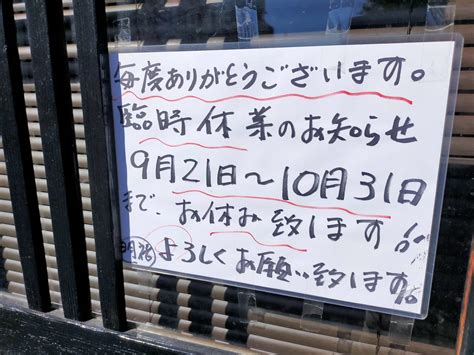 毎度ありがとうございます。
臨時休業のお知らせ
9月21日〜10月31日
まで、お休み致します!
よろしくお願い致します。